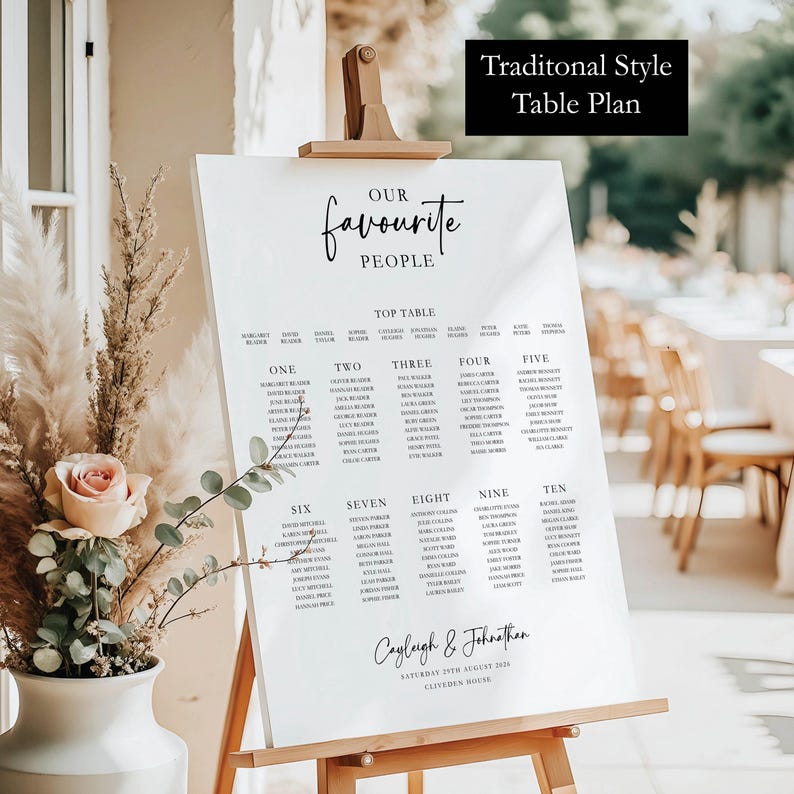 Traditonal Style
Table Plan
OUR
favourite
PEOPLE
TOP TABLE
MARGARET DAVID DANIEL SOPHIE CAYLEIGH JONATHAN ELAINE PETER KATIE THOMAS
READER READER TAYLOR READER HUGHES HUGHES HUGHES HUGHES PETERS STEPHENS
ONE
MARGARET READER
DAVID READER
JUNE READER
ARTHUR READER
ELAINE HUGHES
PETER HUGHES
EMILY HUGHES
THOMAS HUGHES
GRACE WALKER
BENJAMIN CARTER
TWO
OLIVER READER
HANNAH READER
JACK READER
AMELIA READER
GEORGE READER
LUCY READER
DANIEL HUGHES
SOPHIE HUGHES
RYAN CARTER
CHLOE CARTER
THREE
PAUL WALKER
SUSAN WALKER
BEN WALKER
LAURA GREEN
DANIEL GREEN
RUBY GREEN
ALFIE WALKER
GRACE PATEL
HENRY PATEL
EVIE WALKER
FOUR
JAMES CARTER
REBECCA CARTER
SAMUEL CARTER
LILY THOMPSON
OSCAR THOMPSON
SOPHIE CARTER
FREDDIE THOMPSON
ELLA CARTER
THEO MORRIS
MAISIE MORRIS
FIVE
ANDREW BENNETT
RACHEL BENNETT
THOMAS BENNETT
OLIVIA SHAW
JACOB SHAW
EMILY BENNETT
JOSHUA SHAW
CHARLOTTE BENNETT
WILLIAM CLARKE
AVA CLARKE
SIX
DAVID MITCHELL
KAREN MITCHELL
CHRISTOPHER MITCHELL
SARAH EVANS
MATTHEW EVANS
AMY MITCHELL
JOSEPH EVANS
LUCY MITCHELL
DANIEL PRICE
HANNAH PRICE
SEVEN
STEVEN PARKER
LINDA PARKER
AARON PARKER
MEGAN HALL
CONNOR HALL
BETH PARKER
KYLE HALL
LEAH PARKER
JORDAN FISHER
SOPHIE FISHER
EIGHT
ANTHONY COLLINS
JULIE COLLINS
MARK COLLINS
NATALIE WARD
SCOTT WARD
EMMA COLLINS
RYAN WARD
DANIELLE COLLINS
TYLER BAILEY
LAUREN BAILEY
NINE
CHARLOTTE EVANS
BEN THOMPSON
LAURA GREEN
TOM BRADLEY
SOPHIE TURNER
ALEX WOOD
EMILY FOSTER
JAKE MORGAN
HANNAH PRICE
LIAM SCOTT
TEN
RACHEL ADAMS
DANIEL KING
MEGAN CLARKE
OLIVER SHAW
LUCY BENNETT
RYAN COOPER
CHLOE WARD
JAMES FISHER
SOPHIE HALL
ETHAN BAILEY
Cayleigh & Johnathan
SATURDAY 29TH AUGUST 2026
CLIVEDEN HOUSE